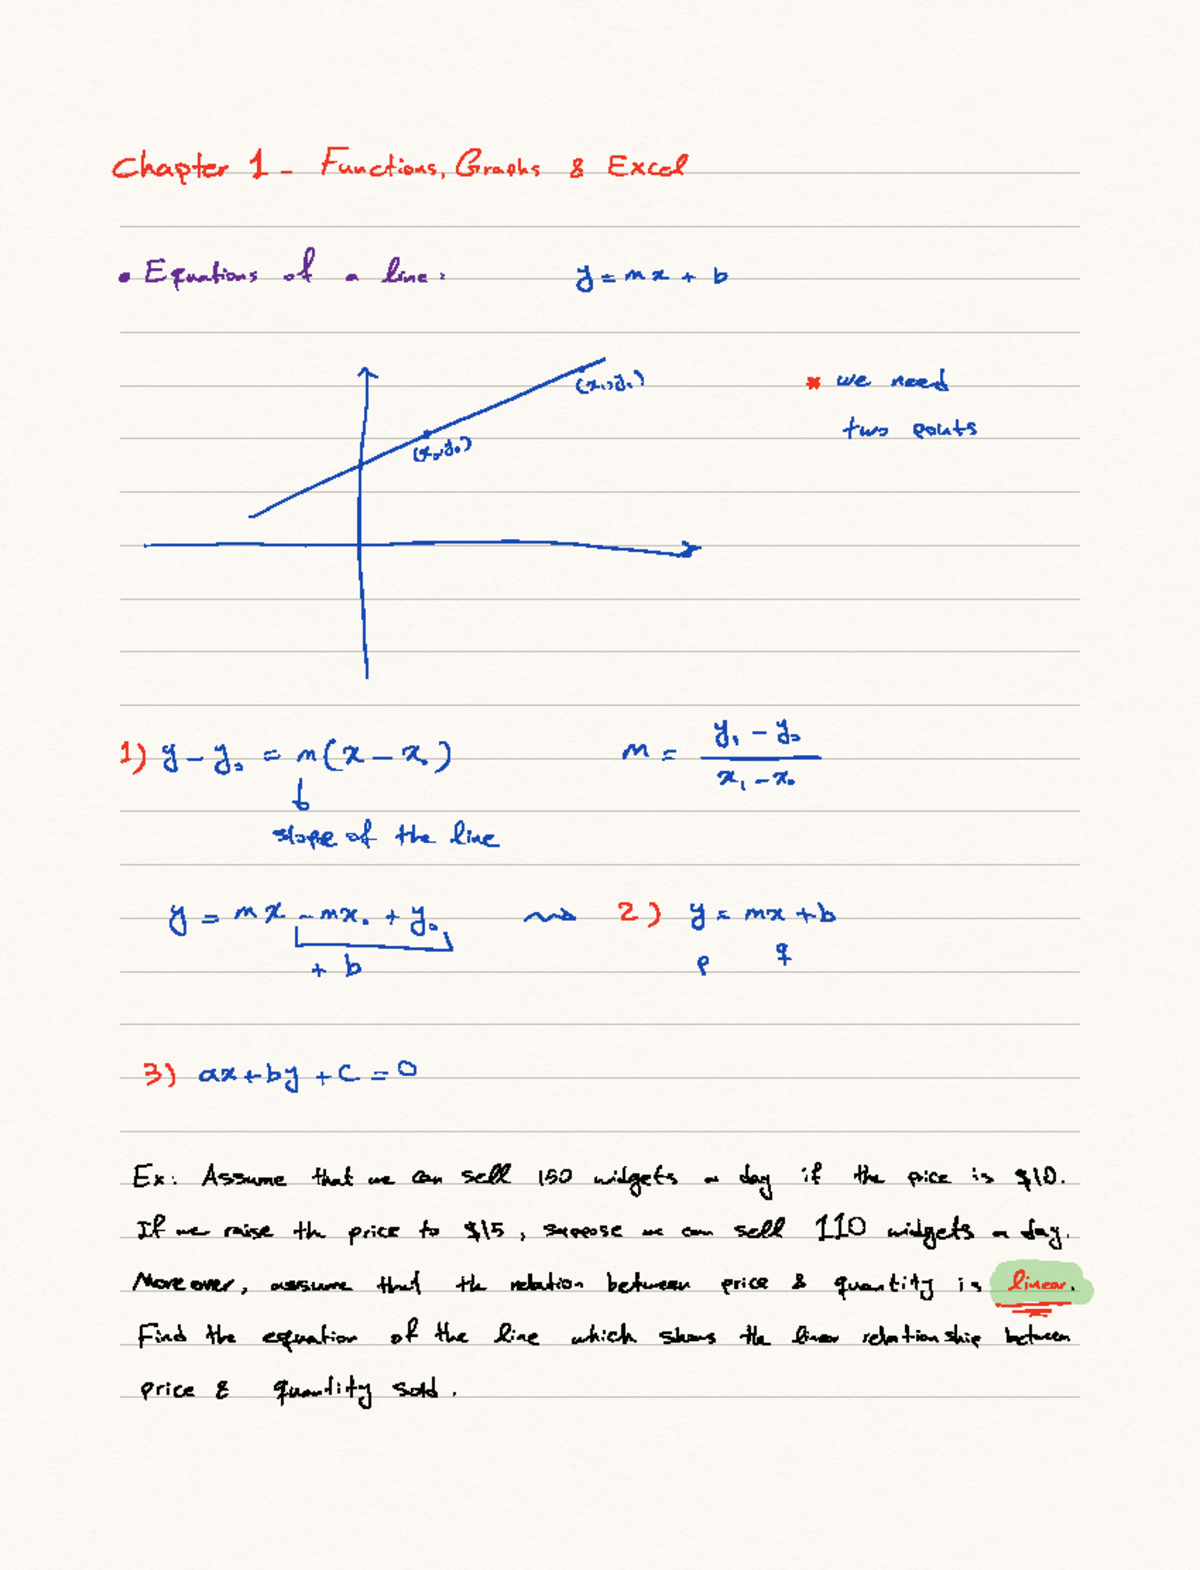 Chapter 1 - Functions, Graphs & Excel
• Equations of a line: y = mx + b
(x₁, y₁)
* we need
two points
(x₀, y₀)
1) y - y₀ = m(x - x₀) m = (y₁ - y₀)/(x₁ - x₀)
slope of the line
y = mx - mx₀ + y₀ ⇝ 2) y = mx + b
+ b p q
3) ax + by + c = 0
Ex: Assume that we can sell 150 widgets a day if the price is $10.
If we raise the price to $15, suppose we can sell 110 widgets a day.
Moreover, assume that the relation between price & quantity is linear.
Find the equation of the line which shows the linear relationship between
price & quantity sold.